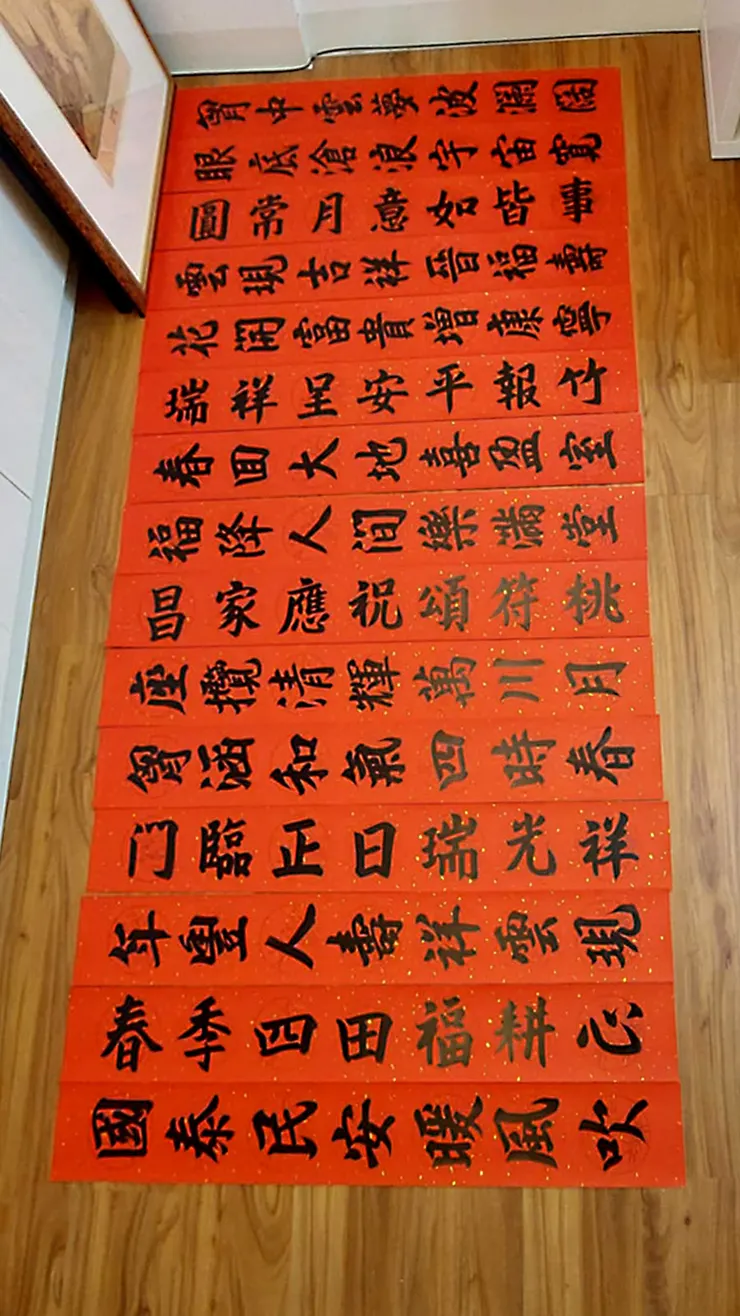 胷中雲夢波瀾闊
眼底滄浪宇宙寬
事皆如意月常圓
雲現吉祥晉福壽
花開富貴增康寧
竹報平安呈祥瑞
春回大地喜盈室
福降人間樂滿堂
桃符頌祝應家昌
座攬清輝萬川月
胷涵和氣四時春
门臨正日瑞光祥
年豐人壽祥雲現
心耕福田四季春
國泰民安暖風吹